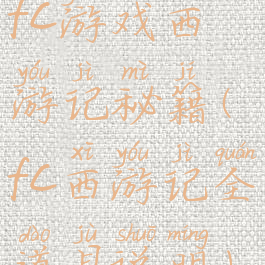 fc游戏西
yóu jì mì jí
游记秘籍(
xī yóu jì quán
fc西游记全
dào jù shuō míng
道具说明)